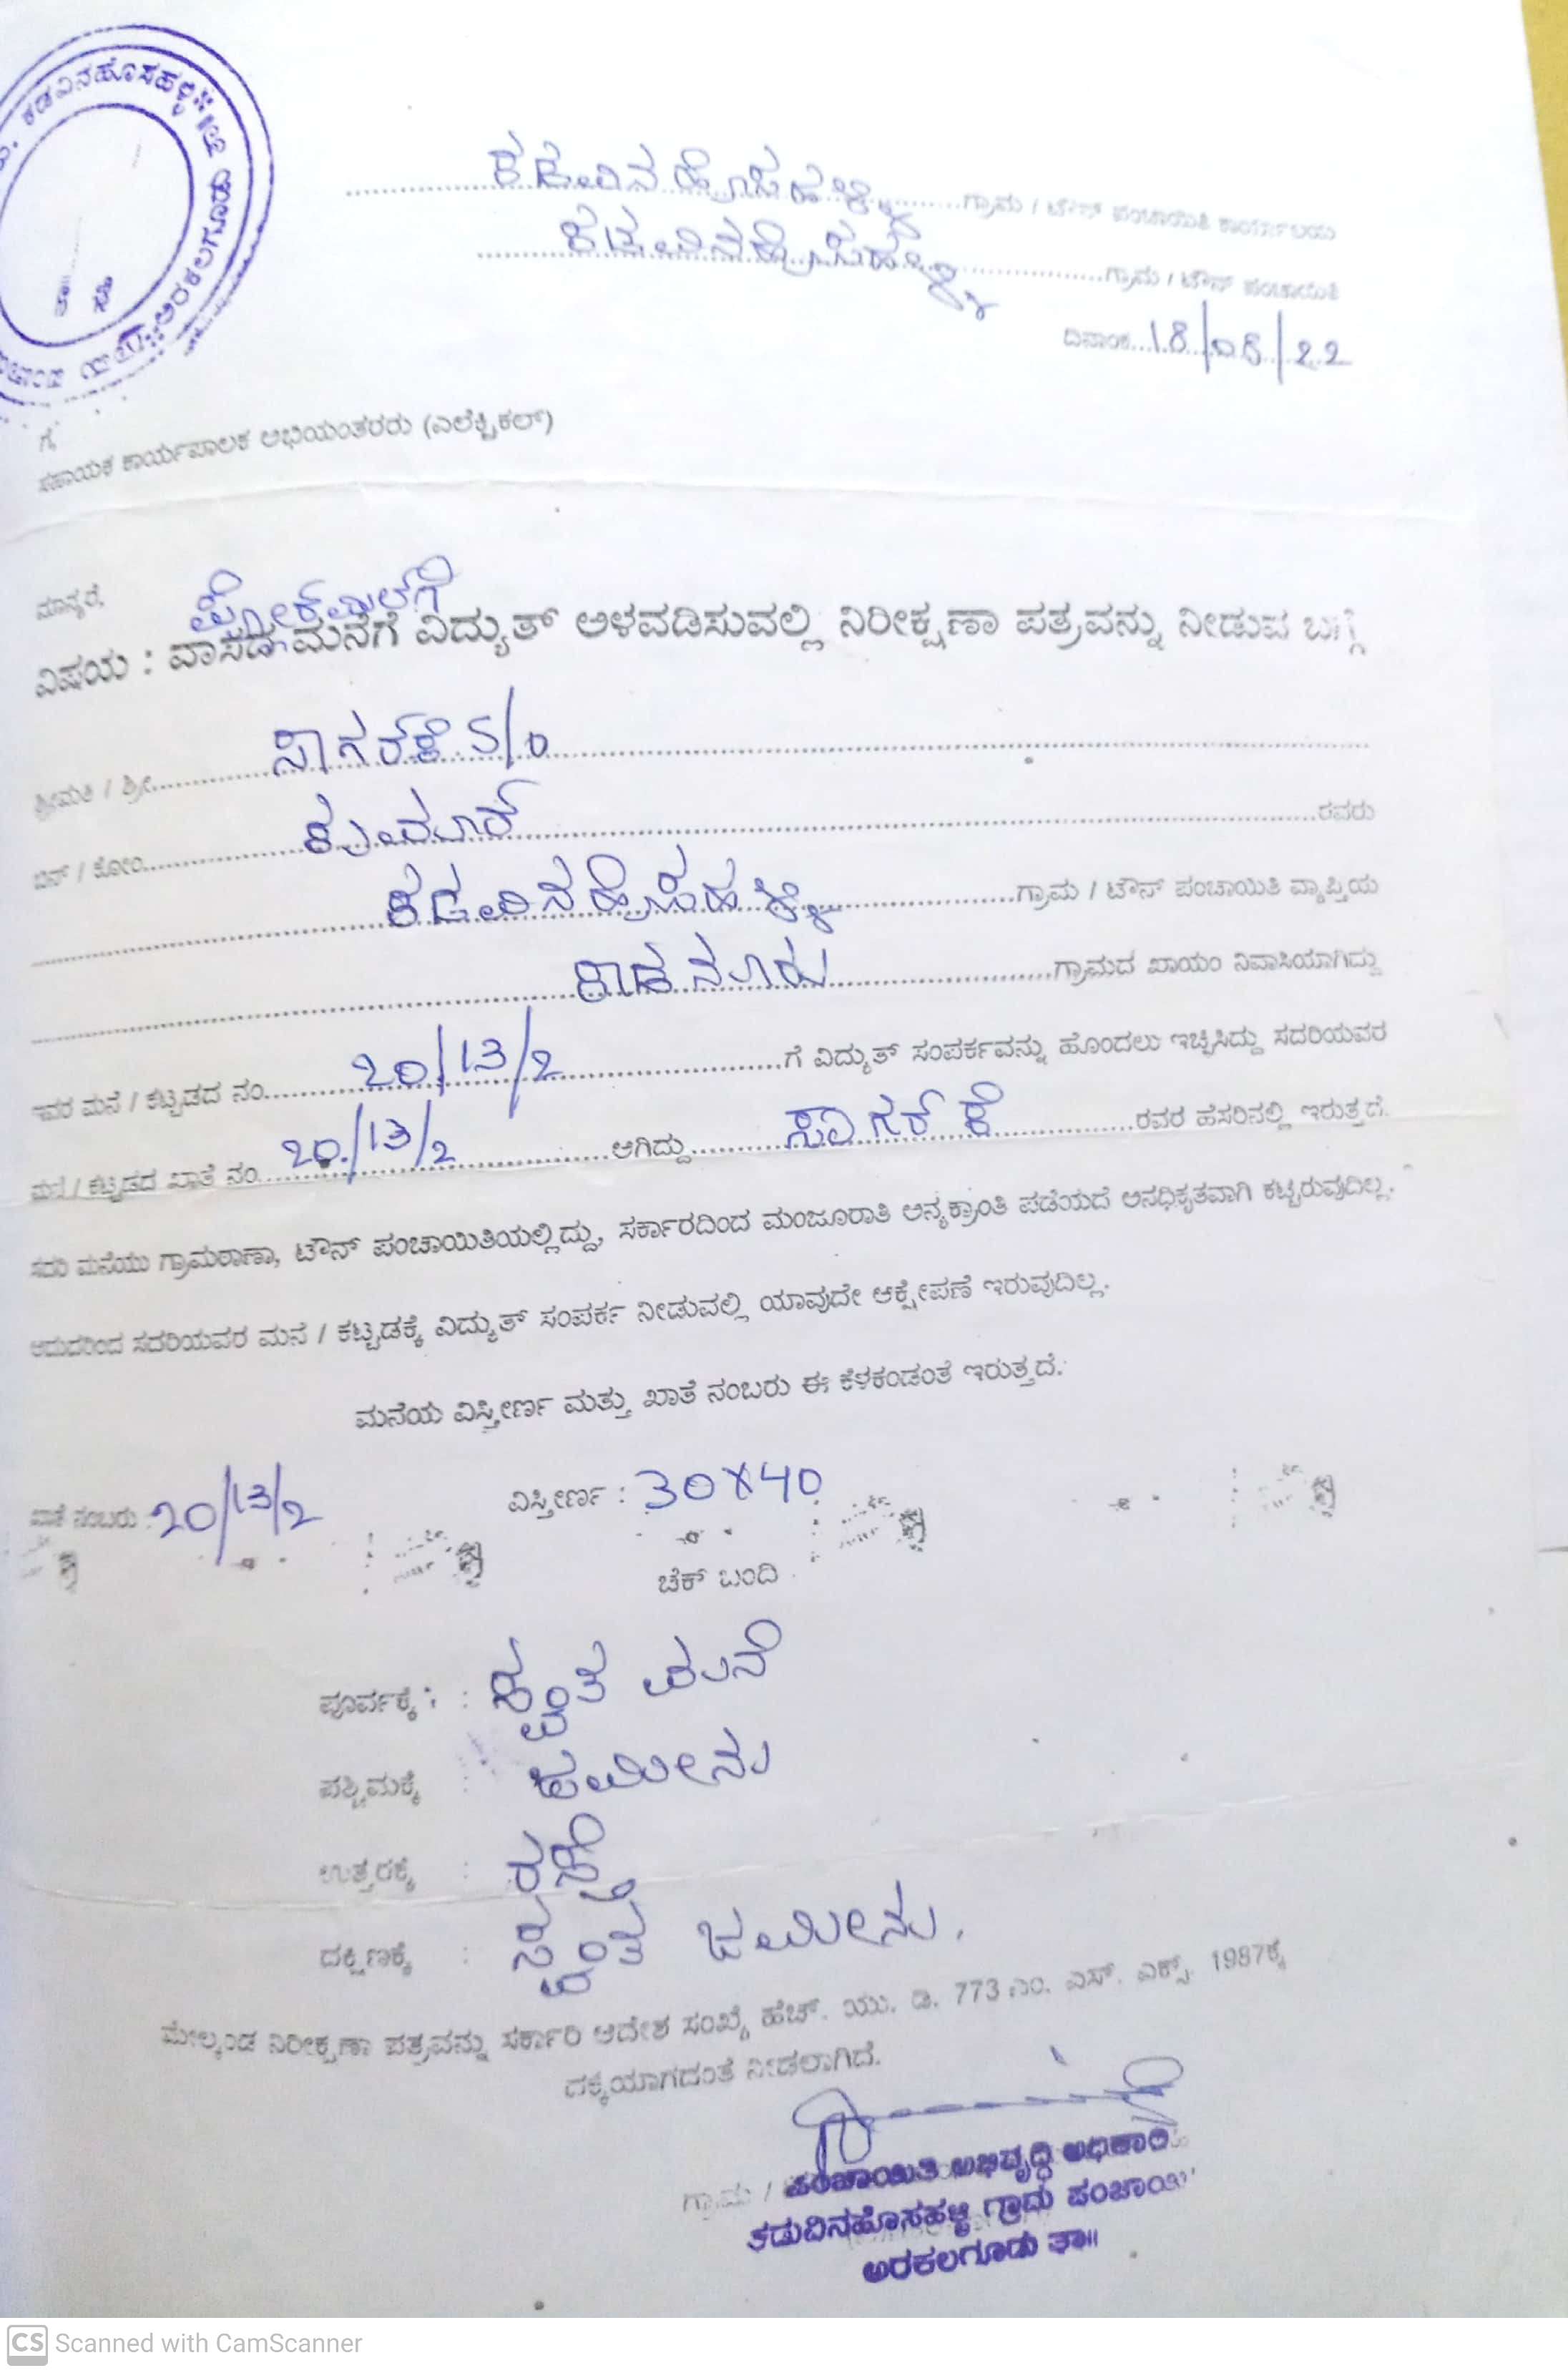 ಕಡವಿನಹೊಸಹಳ್ಳಿ ಅರಕಲಗೂಡು
ಕಡುವಿನಹೊಸಹಳ್ಳಿ ಗ್ರಾಮ / ಟೌನ್ ಪಂಚಾಯಿತಿ ಕಾರ್ಯಾಲಯ
ಕಡುವಿನಹೊಸಹಳ್ಳಿ ಗ್ರಾಮ / ಟೌನ್ ಪಂಚಾಯಿತಿ
ದಿನಾಂಕ 18/08/22
ಗೆ,
ಸಹಾಯಕ ಕಾರ್ಯಪಾಲಕ ಅಭಿಯಂತರರು (ಎಲೆಕ್ಟ್ರಿಕಲ್)
ಮಾನ್ಯರೆ,
ವಿಷಯ : ವಾಸದ ಮನೆಗೆ ವಿದ್ಯುತ್ ಅಳವಡಿಸುವಲ್ಲಿ ನಿರೀಕ್ಷಣಾ ಪತ್ರವನ್ನು ನೀಡುವ ಬಗ್ಗೆ
ಶ್ರೀಮತಿ / ಶ್ರೀ ಸಾಗರ್ ಕೆ S/o
ಬಿನ್ / ಕೋಂ ಕುಮಾರ್ ರವರು
ಕಡುವಿನಹೊಸಹಳ್ಳಿ ಗ್ರಾಮ / ಟೌನ್ ಪಂಚಾಯಿತಿ ವ್ಯಾಪ್ತಿಯ
ಕಾಡನೂರು ಗ್ರಾಮದ ಖಾಯಂ ನಿವಾಸಿಯಾಗಿದ್ದು
ಇವರ ಮನೆ / ಕಟ್ಟಡದ ನಂ 20/13/2 ಗೆ ವಿದ್ಯುತ್ ಸಂಪರ್ಕವನ್ನು ಹೊಂದಲು ಇಚ್ಛಿಸಿದ್ದು ಸದರಿಯವರ
ಮನೆ / ಕಟ್ಟಡದ ಖಾತೆ ನಂ 20/13/2 ಆಗಿದ್ದು ಸಾಗರ್ ಕೆ ರವರ ಹೆಸರಿನಲ್ಲಿ ಇರುತ್ತದೆ.
ಸದರಿ ಮನೆಯು ಗ್ರಾಮಠಾಣಾ, ಟೌನ್ ಪಂಚಾಯಿತಿಯಲ್ಲಿದ್ದು, ಸರ್ಕಾರದಿಂದ ಮಂಜೂರಾತಿ ಅನ್ಯಕ್ರಾಂತಿ ಪಡೆಯದೆ ಅನಧಿಕೃತವಾಗಿ ಕಟ್ಟಿರುವುದಿಲ್ಲ.
ಆದುದರಿಂದ ಸದರಿಯವರ ಮನೆ / ಕಟ್ಟಡಕ್ಕೆ ವಿದ್ಯುತ್ ಸಂಪರ್ಕ ನೀಡುವಲ್ಲಿ ಯಾವುದೇ ಆಕ್ಷೇಪಣೆ ಇರುವುದಿಲ್ಲ.
ಮನೆಯ ವಿಸ್ತೀರ್ಣ ಮತ್ತು ಖಾತೆ ನಂಬರು ಈ ಕೆಳಕಂಡಂತೆ ಇರುತ್ತದೆ.
ಖಾತೆ ನಂಬರು : 20/13/2 ವಿಸ್ತೀರ್ಣ : 30X40
ಚೆಕ್ ಬಂದಿ
ಪೂರ್ವಕ್ಕೆ : ಸ್ವಂತ ಮನೆ
ಪಶ್ಚಿಮಕ್ಕೆ : ಜಮೀನು
ಉತ್ತರಕ್ಕೆ : ರಸ್ತೆ
ದಕ್ಷಿಣಕ್ಕೆ : ಸ್ವಂತ ಜಮೀನು.
ಮೇಲ್ಕಂಡ ನಿರೀಕ್ಷಣಾ ಪತ್ರವನ್ನು ಸರ್ಕಾರಿ ಆದೇಶ ಸಂಖ್ಯೆ ಹೆಚ್. ಯು. ಡಿ. 773 ಎಂ. ಎಸ್. ಎಕ್ಸ್. 1987ಕ್ಕೆ
ದಕ್ಕೆಯಾಗದಂತೆ ನೀಡಲಾಗಿದೆ.
ಗ್ರಾಮ /
ಪಂಚಾಯಿತಿ ಅಭಿವೃದ್ಧಿ ಅಧಿಕಾರಿ
ಕಡುವಿನಹೊಸಹಳ್ಳಿ ಗ್ರಾಮ ಪಂಚಾಯಿ
ಅರಕಲಗೂಡು ತಾ॥
CS Scanned with CamScanner